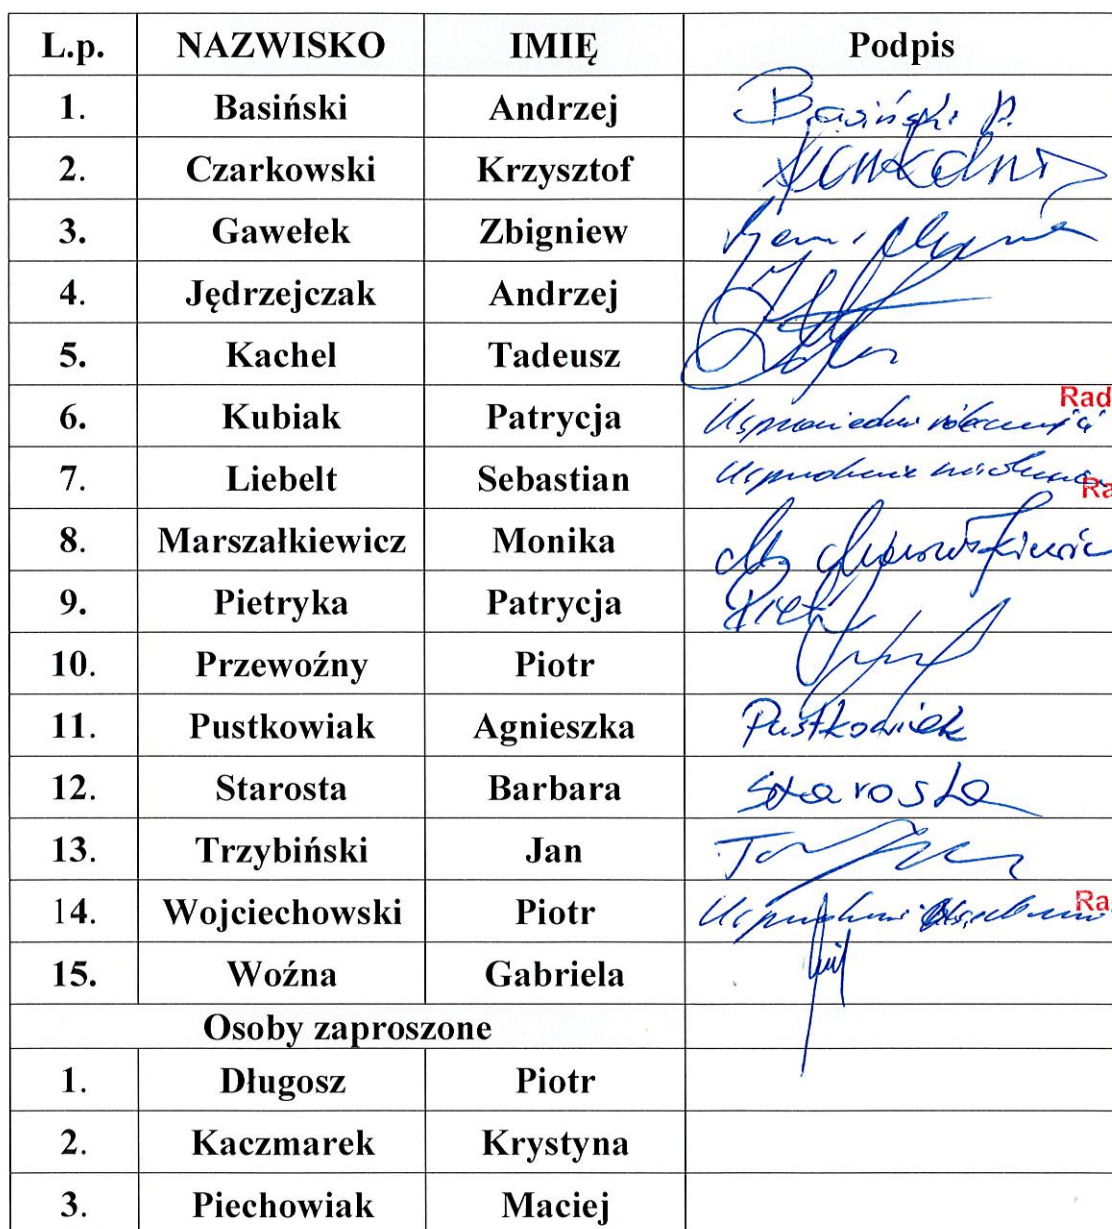 L.p. NAZWISKO IMIĘ Podpis
1. Basiński Andrzej Basiński A.
2. Czarkowski Krzysztof
3. Gawełek Zbigniew
4. Jędrzejczak Andrzej
5. Kachel Tadeusz
6. Kubiak Patrycja Rad
7. Liebelt Sebastian Ra
8. Marszałkiewicz Monika
9. Pietryka Patrycja
10. Przewoźny Piotr
11. Pustkowiak Agnieszka Pustkowiak
12. Starosta Barbara Starosta
13. Trzybiński Jan
14. Wojciechowski Piotr Ra
15. Woźna Gabriela
Osoby zaproszone
1. Długosz Piotr
2. Kaczmarek Krystyna
3. Piechowiak Maciej